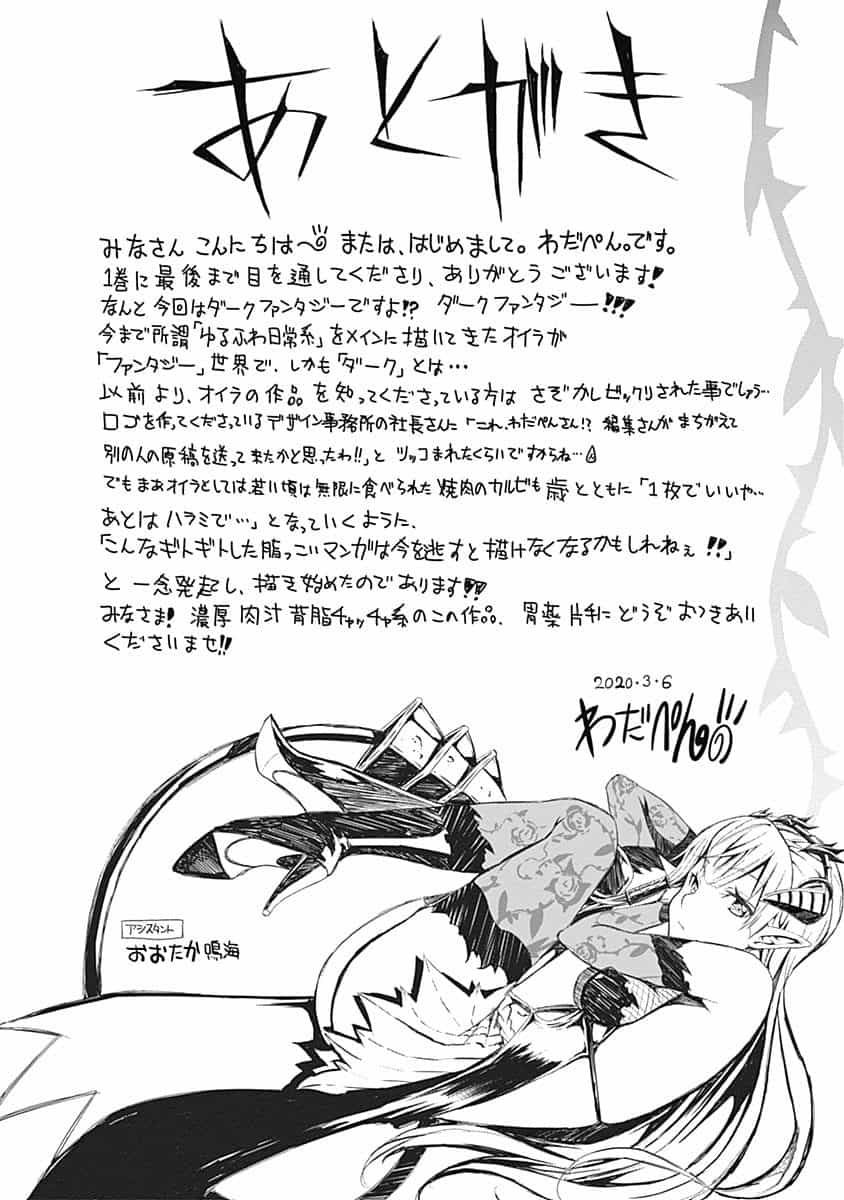 あとがき
みなさん こんにちは〜 または、はじめまして。わだぺん。です。
1巻に最後まで目を通してくださり、ありがとうございます!
なんと今回はダークファンタジーですよ!? ダークファンタジー!!!
今まで所謂「ゆるふわ日常系」をメインに描いてきたオイラが
「ファンタジー」世界で、しかも「ダーク」とは…
以前より、オイラの作品を知ってくださっている方は さぞかしビックリされた事でしょう…
ロゴを作ってくださっているデザイン事務所の社長さんに「これ、わだぺんさん!? 編集さんがまちがえて
別の人の原稿を送って来たかと思ったわ!!」と ツッコまれたくらいですからね…
でもまあオイラとしては若い頃は無限に食べられた焼肉のカルビも歳とともに「1枚でいいや…
あとはハラミで…」となっていくように、
「こんなギトギトした脂っこいマンガは今を逃すと描けなくなるかもしれねぇ!!」
と 一念発起し、描き始めたのであります!!
みなさま! 濃厚肉汁背脂チャッチャ系のこの作品、胃薬片手にどうぞおつきあい
くださいませ!!
2020・3・6
わだぺん。
アシスタント
おおたか鳴海